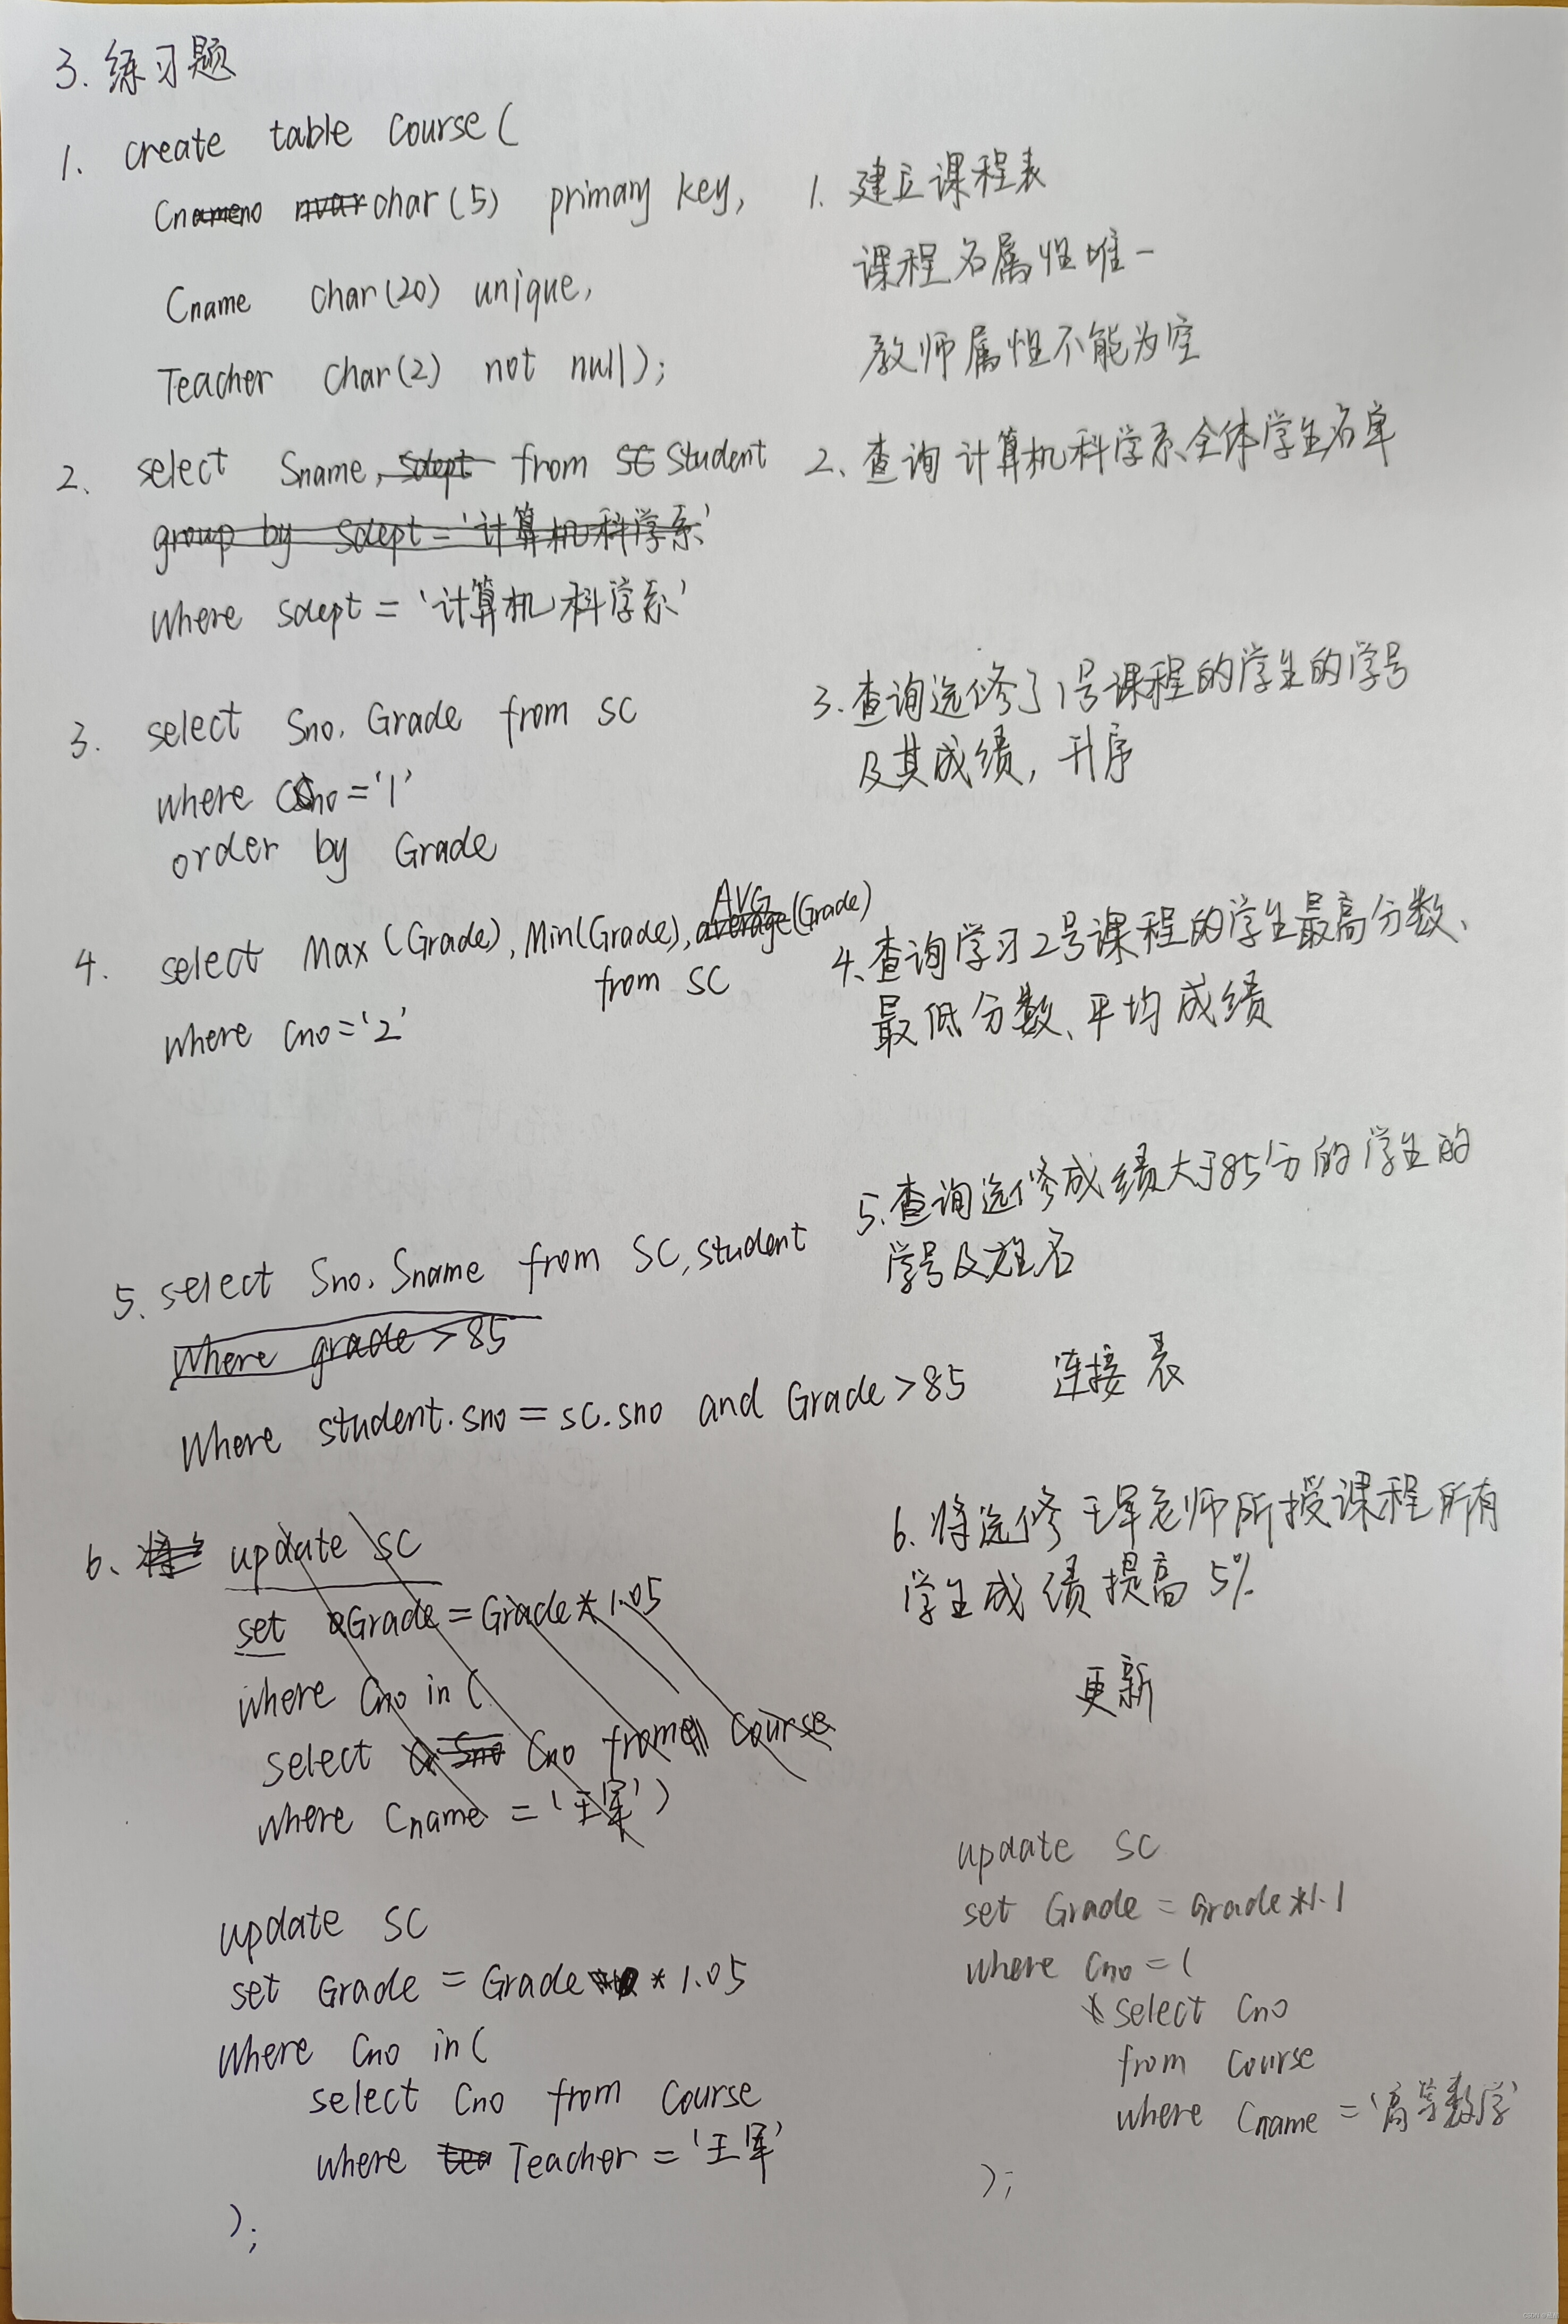 3. 练习题
1. create table Course(
Cno char(5) primary key,
Cname char(20) unique,
Teacher char(2) not null);
1. 建立课程表
课程名属性唯一
教师属性不能为空
2. select Sname, from Student
group by sdept='计算机科学系'
where sdept='计算机科学系'
2、查询计算机科学系全体学生名单
3. select Sno, Grade from SC
where Cno='1'
order by Grade
3. 查询选修了1号课程的学生的学号
及其成绩, 升序
4. select Max(Grade), Min(Grade), AVG(Grade)
from SC
where Cno='2'
4、查询学习2号课程的学生最高分数、
最低分数、平均成绩
5. select Sno, Sname from SC, student
where grade>85
where student.sno=sc.sno and Grade>85
5、查询选修成绩大于85分的学生的
学号及姓名
连接表
6、update SC
set Grade=Grade*1.05
where Cno in(
select Cno from course
where Cname='王军')
6. 将选修王军老师所授课程所有
学生成绩提高5%
更新
update SC
set Grade = Grade * 1.05
where Cno in(
select Cno from Course
where Teacher='王军'
);
update SC
set Grade = Grade*1.1
where Cno=(
select Cno
from Course
where Cname='高等数学'
);